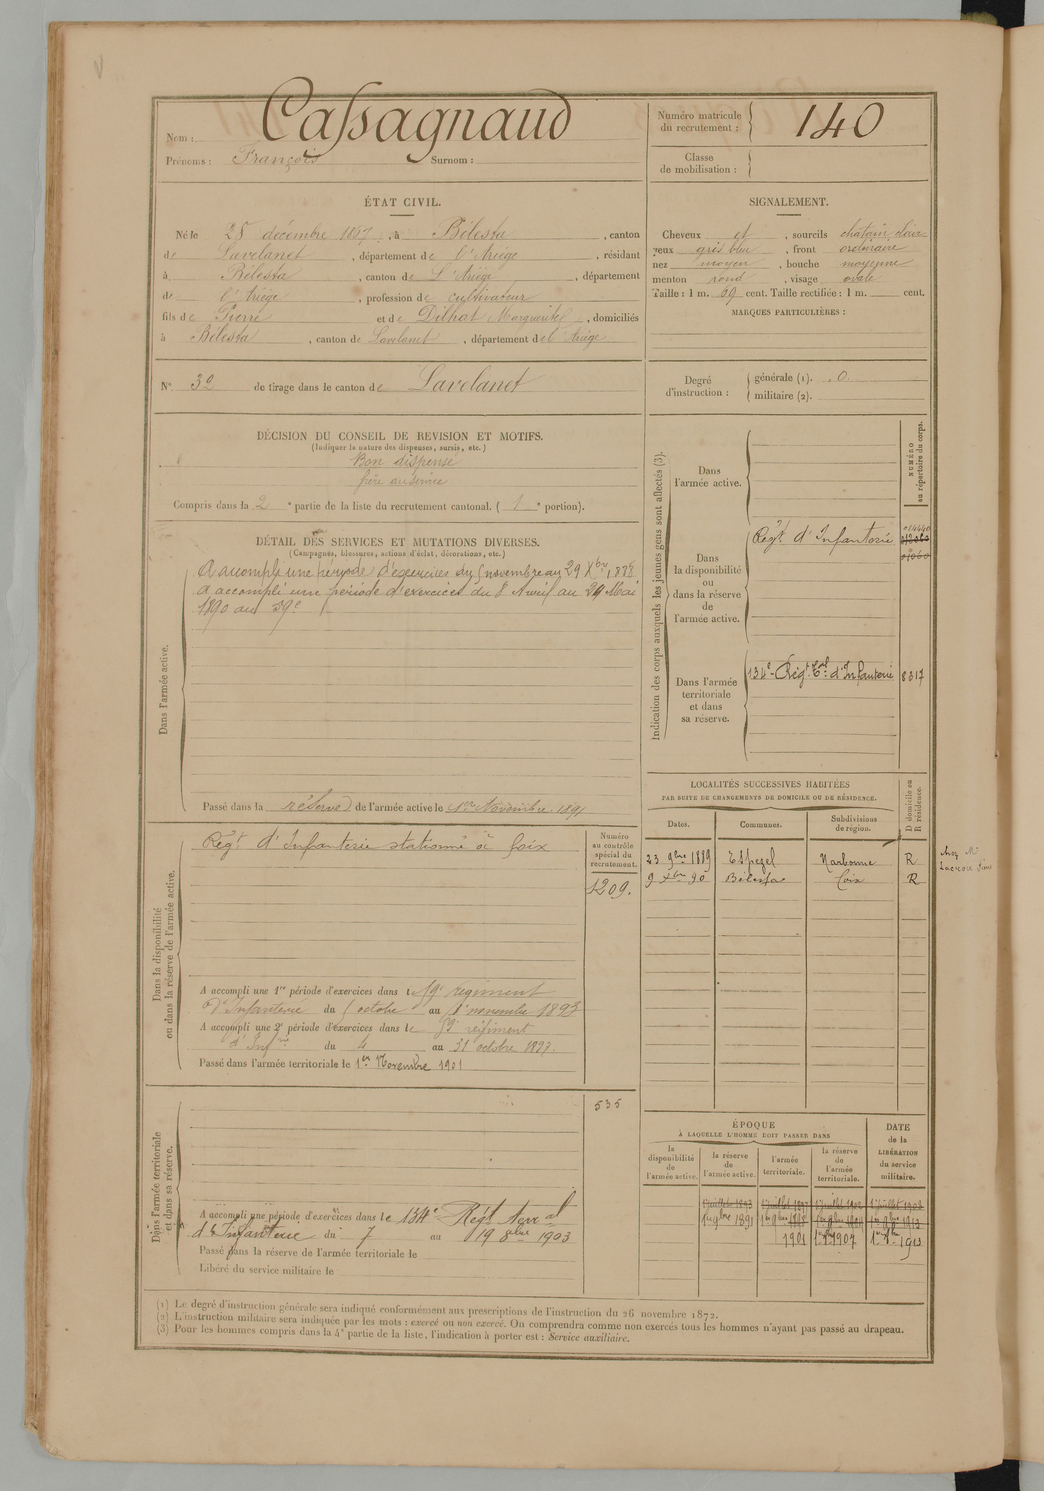 Nom : Cassagnaud
Prénoms : François Surnom :
Numéro matricule du recrutement : 140
Classe de mobilisation :
ÉTAT CIVIL.
Né le 28 décembre 1867, à Bélesta, canton
de Lavelanet, département de l'Ariège, résidant
à Bélesta, canton de L'Ariège, département
de l'Ariège, profession de cultivateur
fils de Pierre et de Dilhat Marguerite, domiciliés
à Bélesta, canton de Lavelanet, département de l'Ariège
N° 32 de tirage dans le canton de Lavelanet
SIGNALEMENT.
Cheveux et, sourcils chatain clair
yeux gris bleu, front ordinaire
nez moyen, bouche moyenne
menton rond, visage ovale
Taille : 1 m. 69 cent. Taille rectifiée : 1 m. cent.
MARQUES PARTICULIÈRES :
Degré d'instruction :
générale (1). 0
militaire (2).
DÉCISION DU CONSEIL DE REVISION ET MOTIFS.
(Indiquer la nature des dispenses, sursis, etc.)
Bon dispensé
frère au service
Compris dans la 2e partie de la liste du recrutement cantonal. ( 1e portion).
DÉTAIL DES SERVICES ET MUTATIONS DIVERSES.
(Campagnes, blessures, actions d'éclat, décorations, etc.)
Dans l'armée active.
A accompli une période d'exercices du novembre au 29 Xbre
A accompli une période d'exercices du Avril au Mai
1890 au 59e
Passé dans la réserve de l'armée active le 1er Novembre 1891
Dans la disponibilité
ou dans la réserve de l'armée active.
Régt d'Infanterie stationné à Foix
Numéro
au contrôle
spécial du
recrutement.
1209.
A accompli une 1re période d'exercices dans le régiment
d'Infanterie du octobre au 1 novembre 1893
A accompli une 2e période d'exercices dans le régiment
d'Infrie du 4 au 31 octobre
Passé dans l'armée territoriale le 1er Novembre 1901
Dans l'armée territoriale
et dans sa réserve.
535
A accompli une période d'exercices dans le 134e Régt
d'Infanterie du 7 au 19 1903
Passé dans la réserve de l'armée territoriale le
Libéré du service militaire le
Indication des corps auxquels les jeunes gens sont affectés (3).
NUMÉRO
au répertoire du corps.
Dans
l'armée active.
Dans
la disponibilité
ou
dans la réserve
de
l'armée active.
Régt d'Infanterie
014440
Dans l'armée
territoriale
et dans
sa réserve.
134e Régt Tal d'Infanterie 8317
LOCALITÉS SUCCESSIVES HABITÉES
PAR SUITE DE CHANGEMENTS DE DOMICILE OU DE RÉSIDENCE.
D domicile ou
R résidence.
Dates. Communes. Subdivisions de région.
23 9bre 1889 Espezel Narbonne R chez Mr
9 Xbre 90 Bélesta Foix R
ÉPOQUE
À LAQUELLE L'HOMME DOIT PASSER DANS
la disponibilité de l'armée active.
la réserve de l'armée active.
l'armée territoriale.
la réserve de l'armée territoriale.
DATE de la LIBÉRATION du service militaire.
1 juillet 1893
1er 9bre 1891
1901 1907 1913
(1) Le degré d'instruction générale sera indiqué conformément aux prescriptions de l'instruction du 26 novembre 1872.
(2) L'instruction militaire sera indiquée par les mots : exercé ou non exercé. On comprendra comme non exercés tous les hommes n'ayant pas passé au drapeau.
(3) Pour les hommes compris dans la 4e partie de la liste, l'indication à porter est : Service auxiliaire.